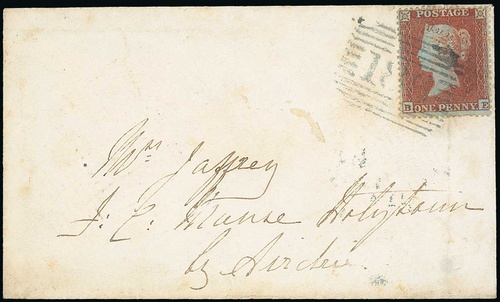 POSTAGE
B E
ONE PENNY
Mrs Jaffrey
F. C. Manse Holytown
by Airdrie